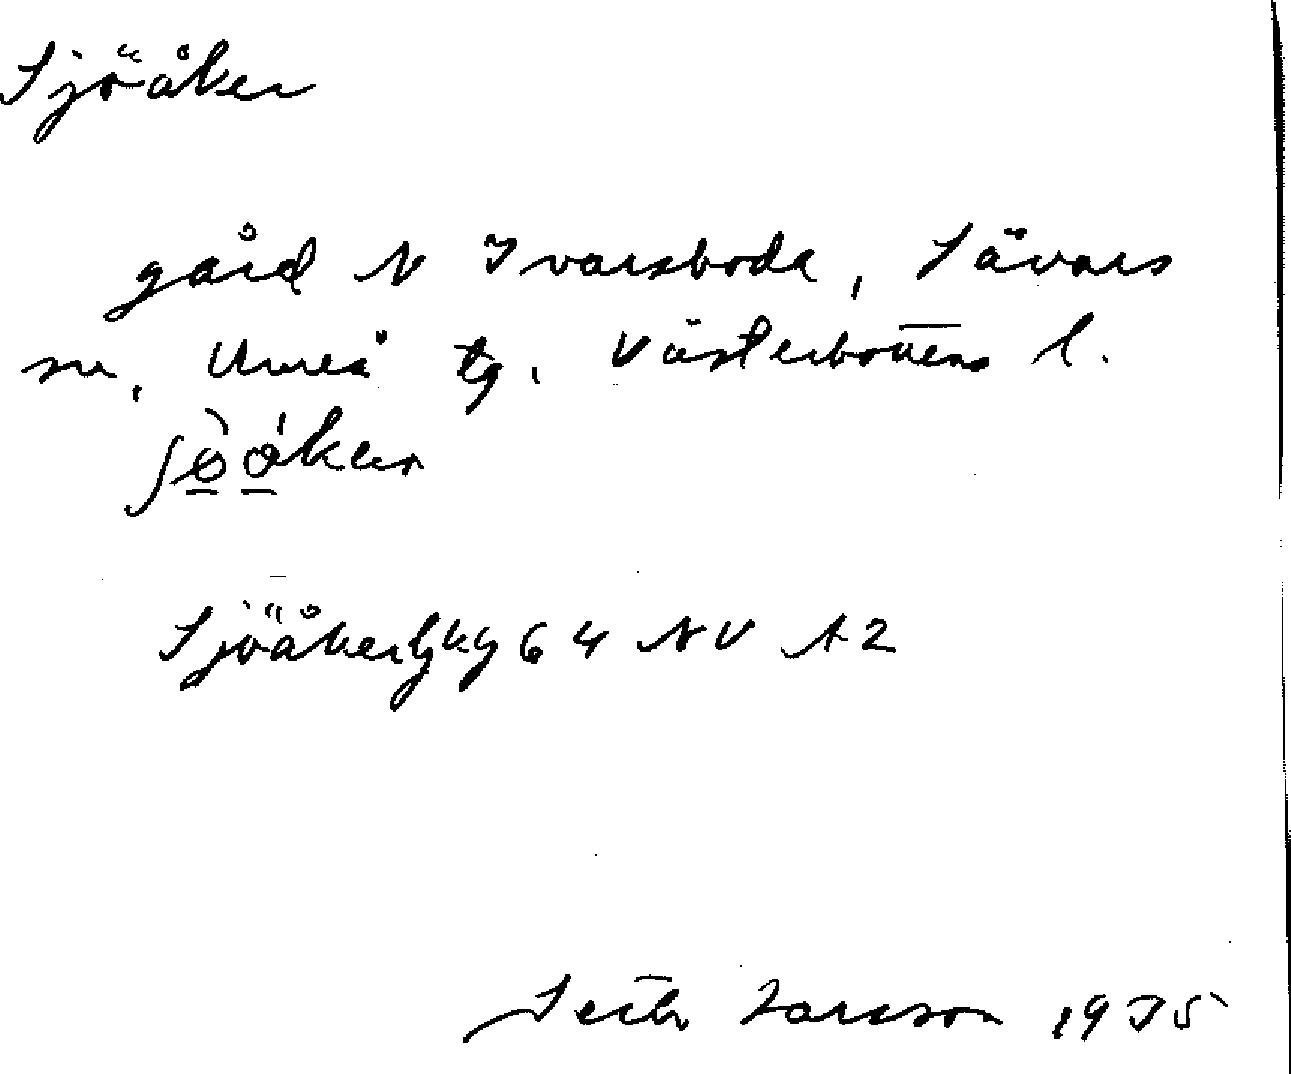 Sjöåker
gård N Ivarsboda, Sävars
sn, Umeå tg, Västerbottens l.
ʃø̠̀ǿ̠ker
Sjöåker Gkg 64 NV A2
Seth Larsson 1975